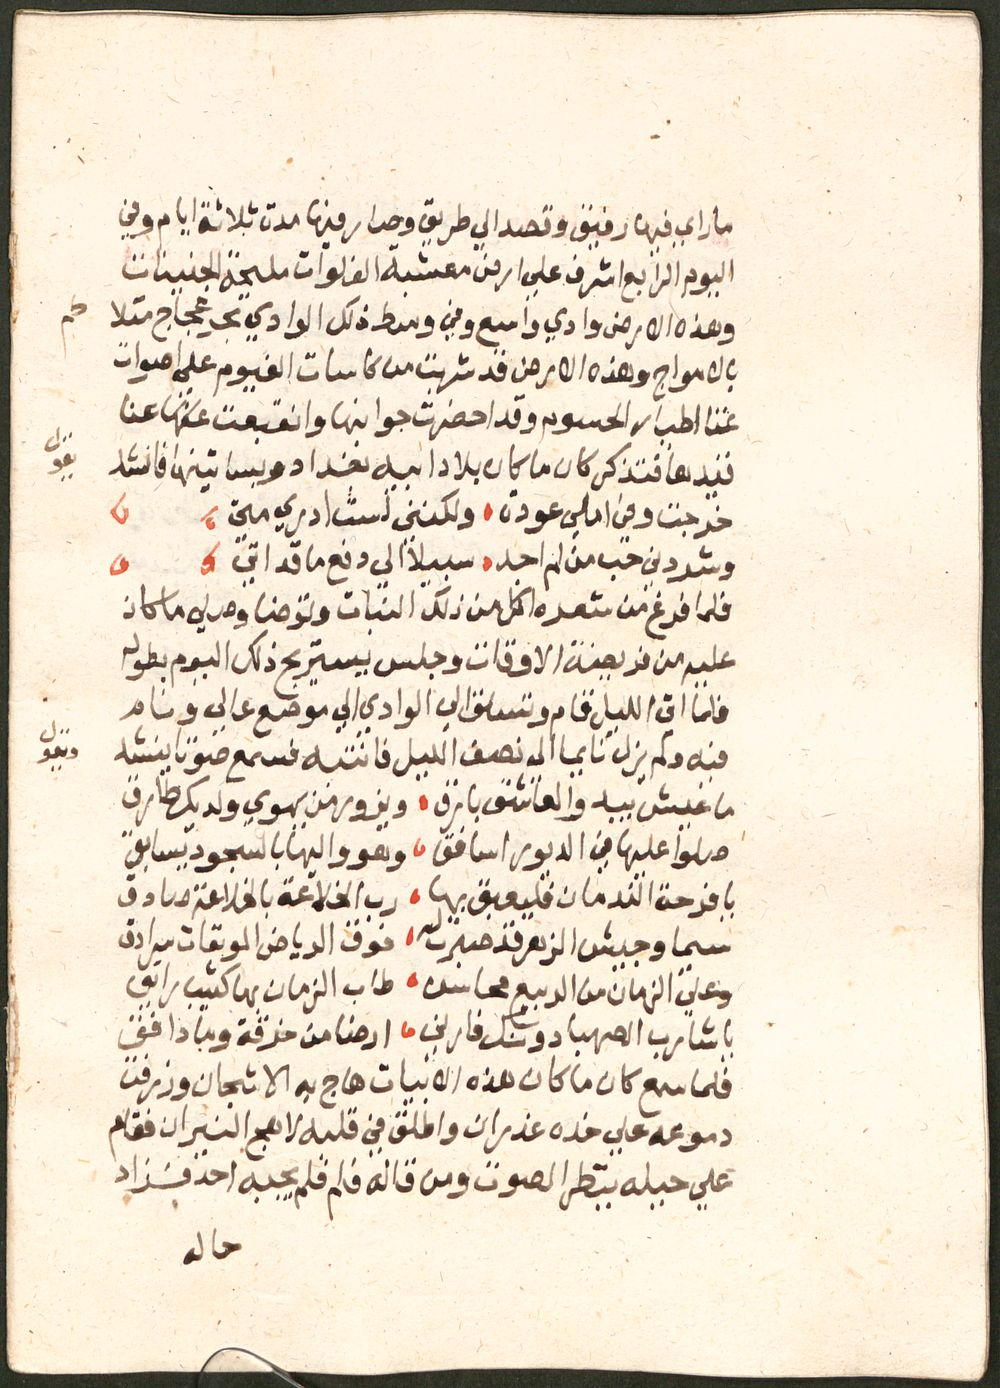 ماراي فيها رفيق وقصد الي طريق وصار فيها مدة ثلاثة ايام وفي
اليوم الرابع اشرف علي ارض معشبة الفلوات مليحة الجنبنات
وهذه الارض وادي واسع وفي وسط ذلك الوادي بحر عجاج متلا
طم
بالامواج وهذه الارض قد شربت من كاسات الغيوم علي اصوات
غنا اطيار الحسوم وقد احضرت جوانبها عنا
يقول
فتذكر كان ما كان بلاد ابيه بغداد وبساتينها فانشد
خرجت وفي املي عودة ولكنني لست ادري متي
وشردني حب من لم اجد سبيلا الي دفع ما قد اتي
فلما فرغ من شعره اكل من ذلك النبات وتوضا وصلي ما كان
عليه من فريضة الاوقات وجلس يستريح ذلك اليوم بطوله
فلما اتي الليل قام وتسلق الي الوادي الي موضع عالي ونام
فيه ولم يزل نايما الي نصف الليل فانتبه فسمع صوتا ينشد
ويقول
ما عيش بيه والعاشق بارق ويزور من يهوي ولديك طارق
صلوا عليها في الديور اساقف وهووا اليها بالسجود يسابق
يا فرحة الندمان بها رب الخلاعة بالخلاعة صادق
سيما وجيش الزهر قد ضربت له فوق الرياض الموبقات سرادق
وعلي الزمان من الربيع محاسن طاب الزمان بها كثيب رايق
يا شارب الصهبا دونك فارلي ارضا من خرقة وما دافق
فلما سمع كان ما كان هذه الابيات هاج به الاشجان وزرفت
دموعه علي خده غدران واطلق في قلبه لاهج النيران فقام
علي حيله ينتظر الصوت ومن قاله قام فلم يجبه احد فزاد
حاله